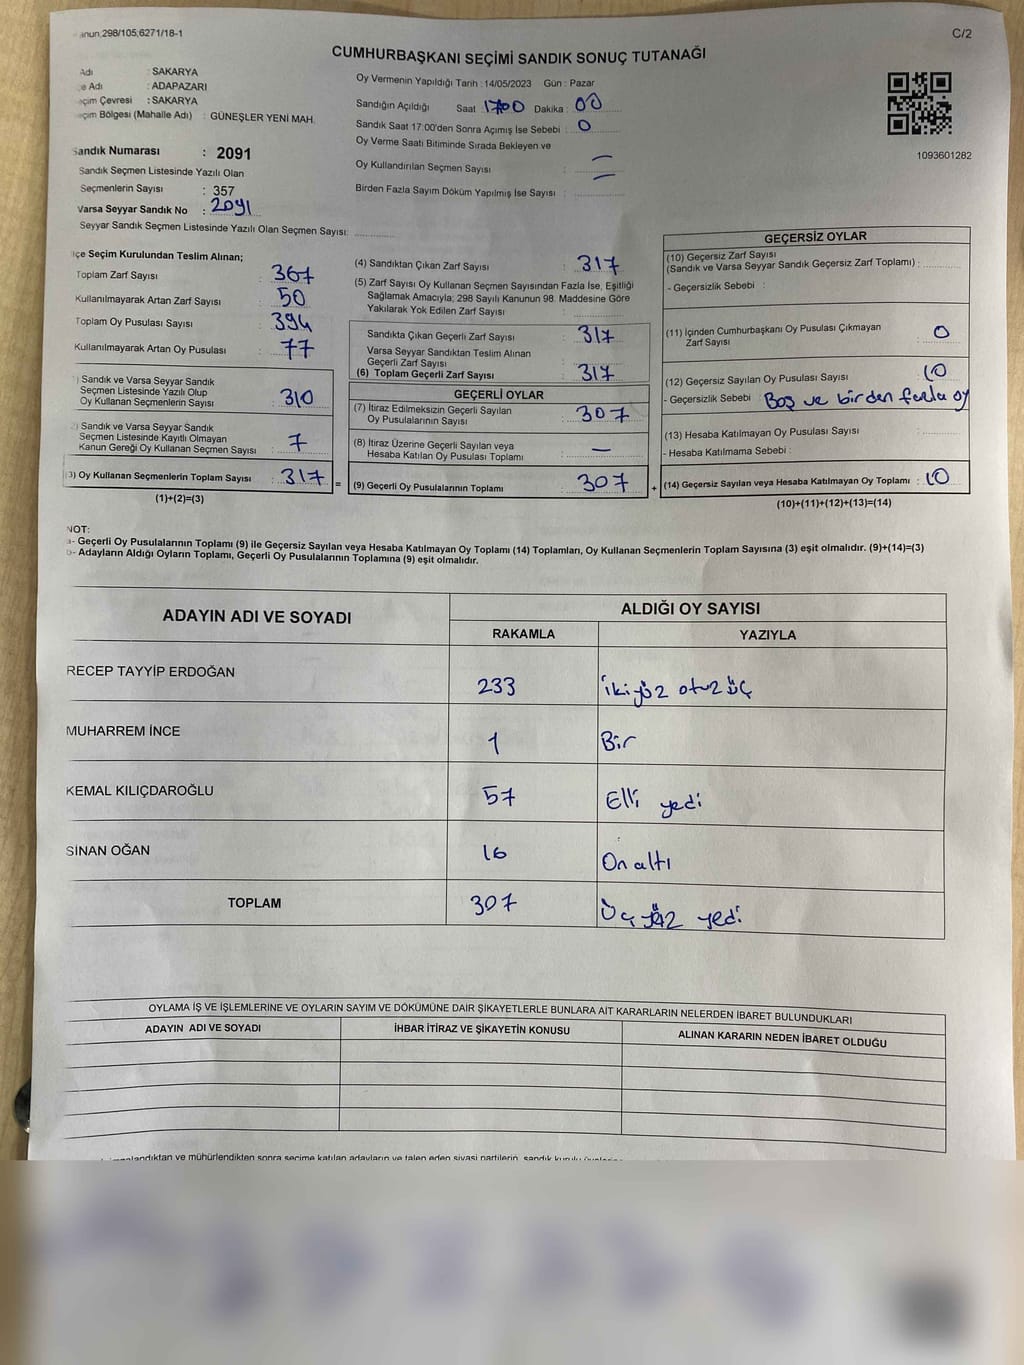 anun,298/105;6271/18-1
C/2
CUMHURBAŞKANI SEÇİMİ SANDIK SONUÇ TUTANAĞI
Adı : SAKARYA
e Adı : ADAPAZARI
eçim Çevresi : SAKARYA
eçim Bölgesi (Mahalle Adı) : GÜNEŞLER YENİ MAH.
Sandık Numarası : 2091
Sandık Seçmen Listesinde Yazılı Olan
Seçmenlerin Sayısı : 357
Varsa Seyyar Sandık No : 2091
Seyyar Sandık Seçmen Listesinde Yazılı Olan Seçmen Sayısı:
Oy Vermenin Yapıldığı Tarih : 14/05/2023 Gün : Pazar
Sandığın Açıldığı Saat 1700 Dakika : 00
Sandık Saat 17:00'den Sonra Açımış İse Sebebi : 0
Oy Verme Saati Bitiminde Sırada Bekleyen ve
Oy Kullandırılan Seçmen Sayısı : —
Birden Fazla Sayım Döküm Yapılmış İse Sayısı : —
1093601282
lçe Seçim Kurulundan Teslim Alınan;
Toplam Zarf Sayısı : 367
Kullanılmayarak Artan Zarf Sayısı : 50
Toplam Oy Pusulası Sayısı : 394
Kullanılmayarak Artan Oy Pusulası : 77
) Sandık ve Varsa Seyyar Sandık
Seçmen Listesinde Yazılı Olup
Oy Kullanan Seçmenlerin Sayısı : 310
) Sandık ve Varsa Seyyar Sandık
Seçmen Listesinde Kayıtlı Olmayan
Kanun Gereği Oy Kullanan Seçmen Sayısı : 7
3) Oy Kullanan Seçmenlerin Toplam Sayısı : 317 =
(1)+(2)=(3)
(4) Sandıktan Çıkan Zarf Sayısı : 317
(5) Zarf Sayısı Oy Kullanan Seçmen Sayısından Fazla İse, Eşitliği
Sağlamak Amacıyla; 298 Sayılı Kanunun 98. Maddesine Göre
Yakılarak Yok Edilen Zarf Sayısı :
Sandıkta Çıkan Geçerli Zarf Sayısı : 317
Varsa Seyyar Sandıktan Teslim Alınan
Geçerli Zarf Sayısı :
(6) Toplam Geçerli Zarf Sayısı : 317
GEÇERLİ OYLAR
(7) İtiraz Edilmeksizin Geçerli Sayılan
Oy Pusulalarının Sayısı : 307
(8) İtiraz Üzerine Geçerli Sayılan veya
Hesaba Katılan Oy Pusulası Toplamı : —
(9) Geçerli Oy Pusulalarının Toplamı : 307 +
GEÇERSİZ OYLAR
(10) Geçersiz Zarf Sayısı
(Sandık ve Varsa Seyyar Sandık Geçersiz Zarf Toplamı) :
- Geçersizlik Sebebi :
(11) İçinden Cumhurbaşkanı Oy Pusulası Çıkmayan
Zarf Sayısı : 0
(12) Geçersiz Sayılan Oy Pusulası Sayısı : 10
- Geçersizlik Sebebi : Boş ve birden fazla oy
(13) Hesaba Katılmayan Oy Pusulası Sayısı :
- Hesaba Katılmama Sebebi :
(14) Geçersiz Sayılan veya Hesaba Katılmayan Oy Toplamı : 10
(10)+(11)+(12)+(13)=(14)
NOT:
a- Geçerli Oy Pusulalarının Toplamı (9) ile Geçersiz Sayılan veya Hesaba Katılmayan Oy Toplamı (14) Toplamları, Oy Kullanan Seçmenlerin Toplam Sayısına (3) eşit olmalıdır. (9)+(14)=(3)
b- Adayların Aldığı Oyların Toplamı, Geçerli Oy Pusulalarının Toplamına (9) eşit olmalıdır.
ADAYIN ADI VE SOYADI
ALDIĞI OY SAYISI
RAKAMLA YAZIYLA
RECEP TAYYİP ERDOĞAN 233 ikiyüz otuz üç
MUHARREM İNCE 1 Bir
KEMAL KILIÇDAROĞLU 57 Elli yedi
SİNAN OĞAN 16 On altı
TOPLAM 307 Üç yüz yedi
OYLAMA İŞ VE İŞLEMLERİNE VE OYLARIN SAYIM VE DÖKÜMÜNE DAİR ŞİKAYETLERLE BUNLARA AİT KARARLARIN NELERDEN İBARET BULUNDUKLARI
ADAYIN ADI VE SOYADI İHBAR İTİRAZ VE ŞİKAYETİN KONUSU ALINAN KARARIN NEDEN İBARET OLDUĞU
mzalandıktan ve mühürlendikten sonra seçime katılan adayların ve talep eden siyasi partilerin, sandık kurulu